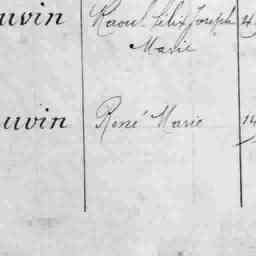 uvin Raoul Félix Joseph 4
Marie
uvin René Marie 14